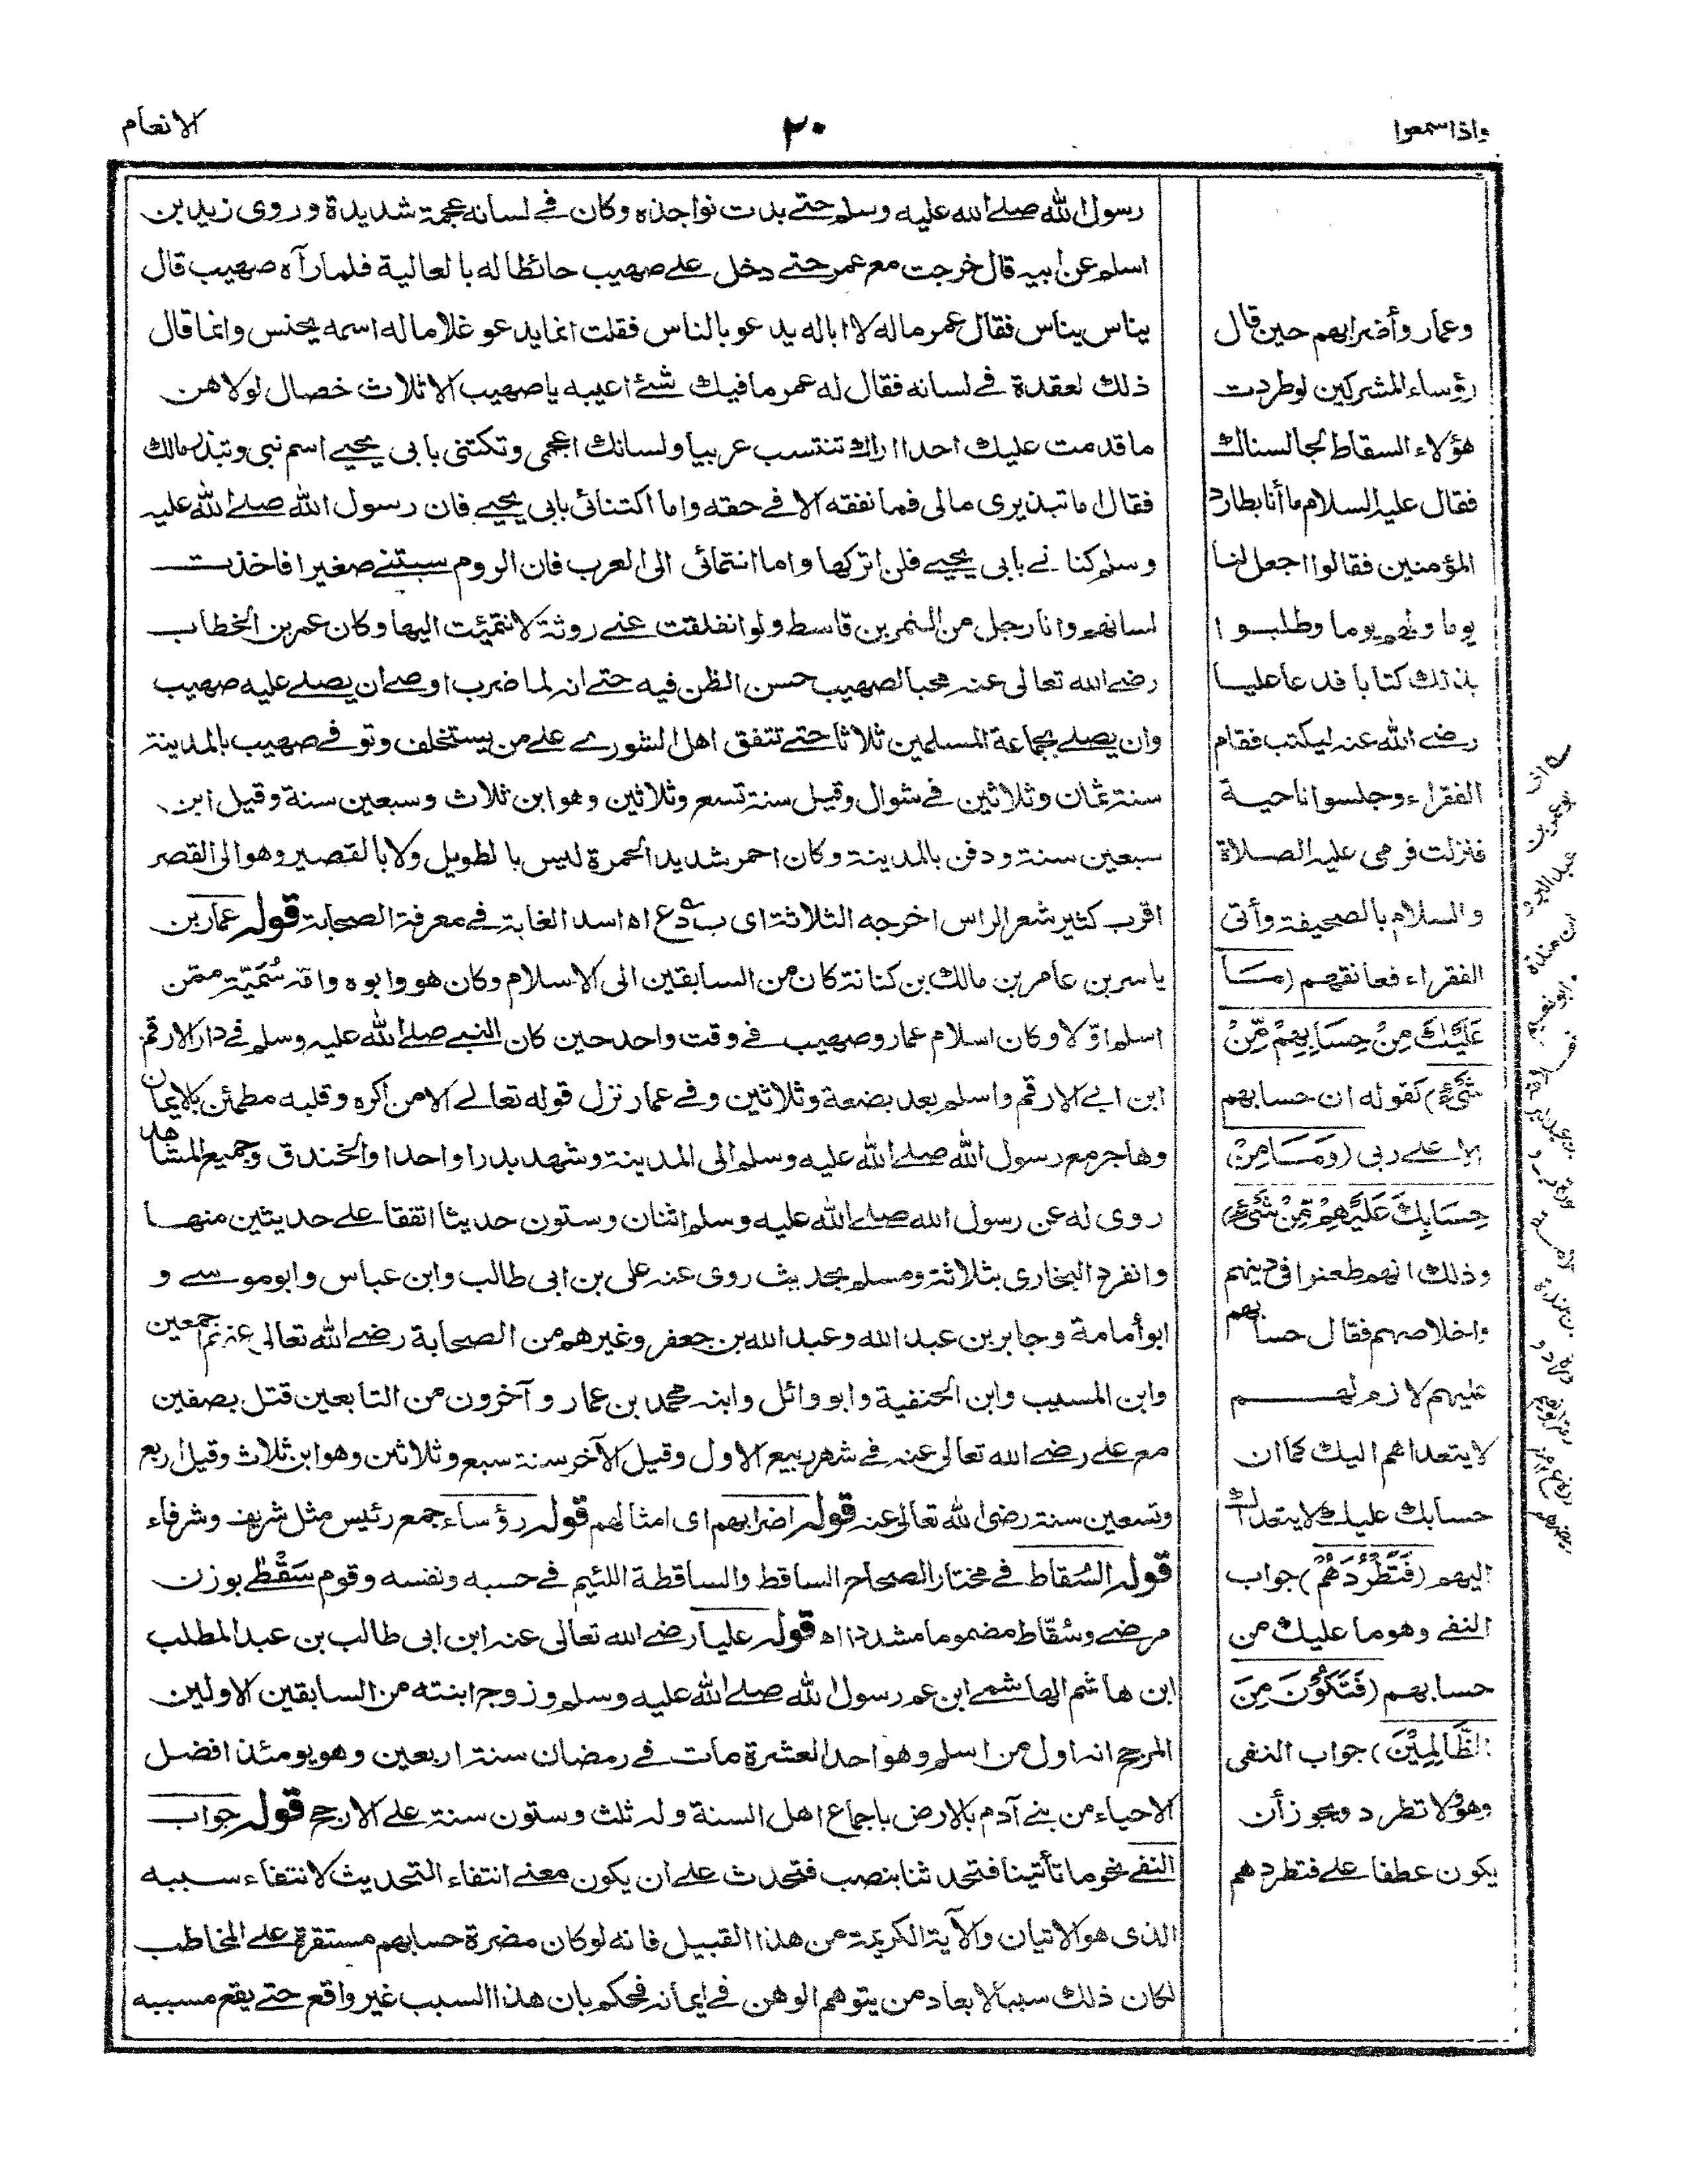 واذاسمعوا
٢٠
الانعام
وعمار وأضرابهم حين قال
رؤساء المشركين لو طردت
هؤلاء السقاط لجالسناك
فقال عليه السلام ما أنا بطارد
المؤمنين فقالوا اجعل لنا
يوما ولهم يوما وطلبوا
بذلك كتابا فدعا عليا
رضي الله عنه ليكتب فقام
الفقراء وجلسوا ناحية
فنزلت فرمى عليه الصلاة
والسلام بالصحيفة وأتى
الفقراء فعانقهم (مَا
عَلَيْكَ مِنْ حِسَابِهِمْ مِّنْ
شَيْءٍ) كقوله ان حسابهم
إلا على ربى (وَمَا مِنْ
حِسَابِكَ عَلَيْهِمْ مِّنْ شَيْءٍ)
وذلك انهم طعنوا فى دينهم
واخلاصهم فقال حسابهم
عليهم لازم لهم
لا يتعداهم اليك كما ان
حسابك عليك لا يتعداك
اليهم (فَتَطْرُدَهُمْ) جواب
النفى وهو ما عليك من
حسابهم (فَتَكُوْنَ مِنَ
الظَّالِمِيْنَ) جواب النفى
وهو ولا تطرد ويجوز أن
يكون عطفا على فتطردهم
رسول الله صلى الله عليه وسلم حتى بدت نواجذه وكان في لسانه عجمة شديدة وروى زيد بن
اسلم عن ابيه قال خرجت مع عمر حتى دخل على صهيب حائطا له بالعالية فلما رآه صهيب قال
يناس يناس فقال عمر ماله لا ابا له يدعو بالناس فقلت انما يدعو غلاما له اسمه يحنس وانما قال
ذلك لعقدة في لسانه فقال له عمر ما فيك شئ اعيبه يا صهيب الا ثلاث خصال لولاهن
ما قدمت عليك احدا اراك تنتسب عربيا ولسانك اعجمى وتكتنى بابى يحيى اسم نبى وتبذر مالك
فقال اما تبذيرى مالى فما نفقه الا في حقه واما اكتنائى بابى يحيى فان رسول الله صلى الله عليه
وسلم كنانى بابى يحيى فلن اتركها واما انتمائى الى العرب فان الروم سبتنى صغيرا فاخذت
لسانهم وانا رجل من النمر بن قاسط ولو انفلقت عنى روثة لانتميئت اليها وكان عمر بن الخطاب
رضى الله تعالى عنه محبا لصهيب حسن الظن فيه حتى انه لما ضرب اوصى ان يصلى عليه صهيب
وان يصلى بجماعة المسلمين ثلاثا حتى تتفق اهل الشورى على من يستخلف وتوفى صهيب بالمدينة
سنة ثمان وثلاثين في شوال وقيل سنة تسع وثلاثين وهو ابن ثلاث وسبعين سنة وقيل ابن
سبعين سنة ودفن بالمدينة وكان احمر شديد الحمرة ليس بالطويل ولا بالقصير وهو الى القصر
اقرب كثير شعر الراس اخرجه الثلاثة اى ب د ع اه اسد الغابة في معرفة الصحابة قوله عمار بن
ياسر بن عامر بن مالك بن كنانة كان من السابقين الى الاسلام وكان هو وابوه وامه سُمَيّة ممن
اسلم اوّلا وكان اسلام عمار وصهيب في وقت واحد حين كان النبى صلى الله عليه وسلم في دار الارقم
ابن ابى الارقم واسلم بعد بضعة وثلاثين وفي عمار نزل قوله تعالى الا من اكره وقلبه مطمئن بالايمان
وهاجر مع رسول الله صلى الله عليه وسلم الى المدينة وشهد بدرا واحدا والخندق وجميع المشاهد
روى له عن رسول الله صلى الله عليه وسلم اثنان وستون حديثا اتفقا على حديثين منها
وانفرد البخارى بثلاثة ومسلم بحديث روى عنه على بن ابى طالب وابن عباس وابو موسى و
ابو أمامة وجابر بن عبد الله وعبد الله بن جعفر وغيرهم من الصحابة رضى الله تعالى عنهم اجمعين
وابن المسيب وابن الحنفية وابو وائل وابنه محمد بن عمار وآخرون من التابعين قتل بصفين
مع على رضى الله تعالى عنه في شهر ربيع الاول وقيل الآخر سنة سبع وثلاثين وهو ابن ثلاث وقيل اربع
وتسعين سنة رضى الله تعالى عنه قوله اضرابهم اى امثالهم قوله رؤساء جمع رئيس مثل شريف وشرفاء
قوله السُقاط في مختار الصحاح الساقط والساقطة اللئيم في حسبه ونفسه وقوم سَقْطٰى بوزن
مرضى وسُقّاط مضموما مشددا اه قوله عليا رضى الله تعالى عنه ابن ابى طالب بن عبد المطلب
ابن هاشم الهاشمى ابن عم رسول الله صلى الله عليه وسلم وزوج ابنته من السابقين الاولين
المرجح انه اول من اسلم وهو احد العشرة مات في رمضان سنة اربعين وهو يومئذ افضل
الاحياء من بنى آدم بالارض باجماع اهل السنة وله ثلث وستون سنة على الارجح قوله جواب
النفى نحو ما تأتينا فتحدثنا بنصب فتحدث على ان يكون معنى انتفاء التحديث لانتفاء سببه
الذى هو الاتيان والآية الكريمة من هذا القبيل فانه لو كان مضرة حسابهم مستقرة على المخاطب
لكان ذلك سببا لابعاد من يتوهم الوهن في ايمانه فحكم بان هذا السبب غير واقع حتى يقع مسببه